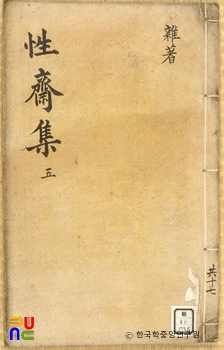 雜著
性齋集
五
共十七
PUNC
© 한국학중앙연구원